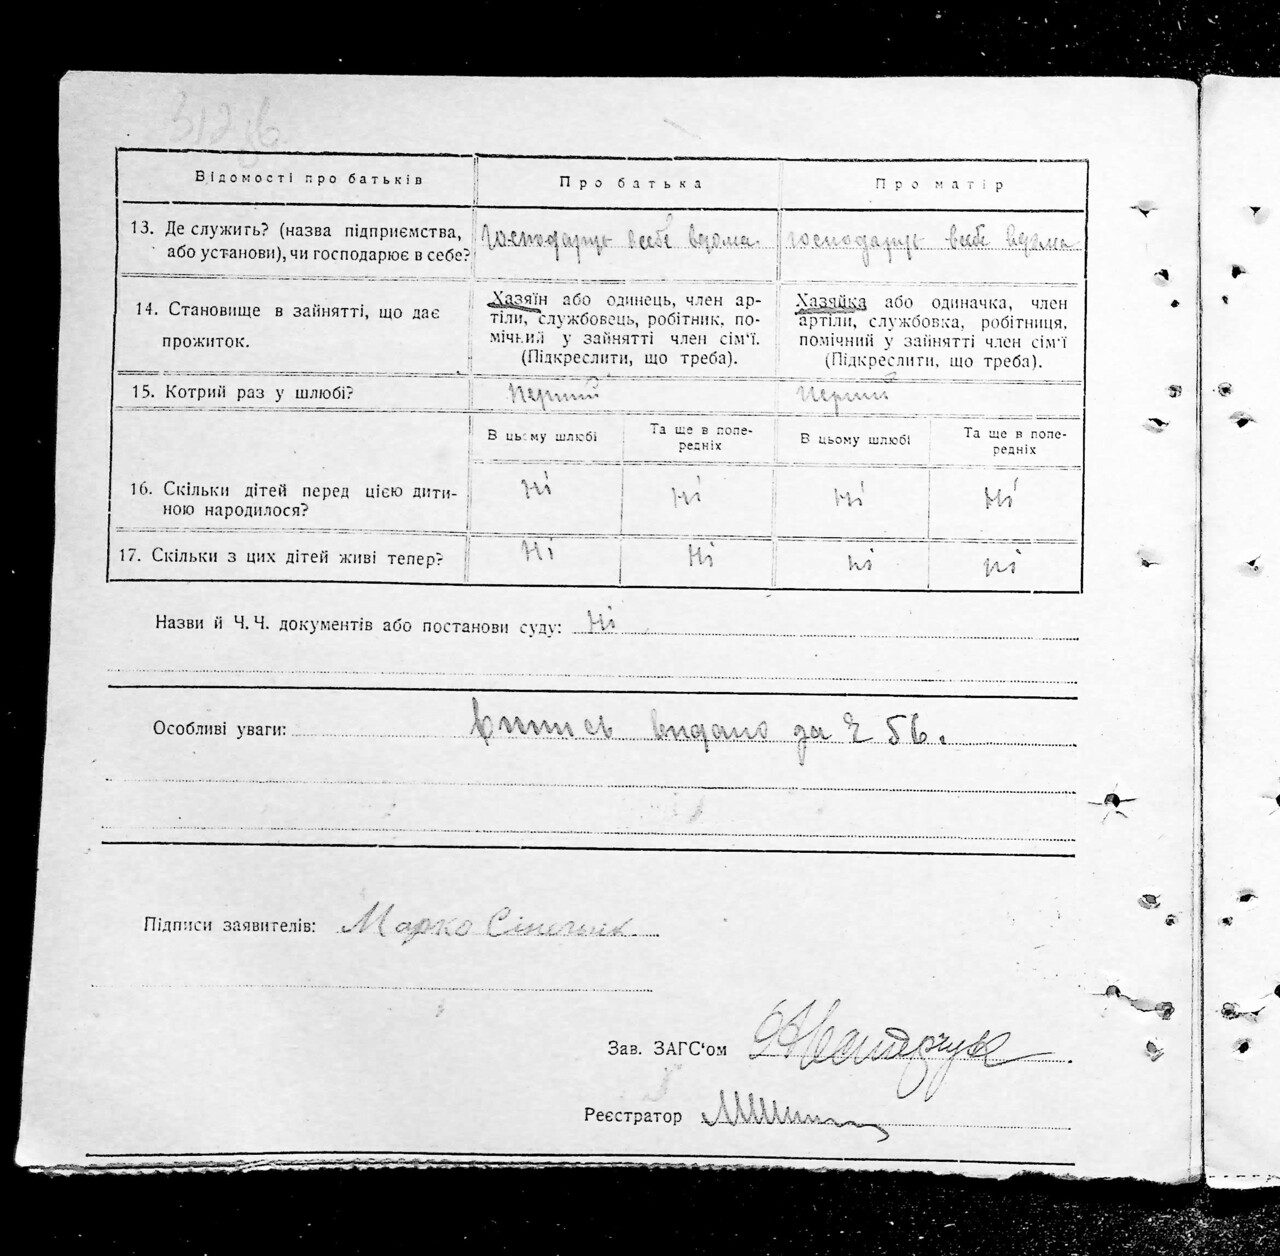 312 зв.
Відомості про батьків
Про батька
Про матір
13. Де служить? (назва підприємства,
або установи), чи господарює в себе?
Господарує в себе вдома
Господарує в себе вдома
14. Становище в зайнятті, що дає
прожиток.
Хазяїн або одинець, член ар-
тіли, службовець, робітник, по-
мічний у зайнятті член сім'ї.
(Підкреслити, що треба).
Хазяйка або одиначка, член
артіли, службовка, робітниця,
помічний у зайнятті член сім'ї
(Підкреслити, що треба).
15. Котрий раз у шлюбі?
Перший
Перший
В цьому шлюбі
Та ще в попе-
редніх
В цьому шлюбі
Та ще в попе-
редніх
16. Скільки дітей перед цією дити-
ною народилося?
Ні
Ні
Ні
Ні
17. Скільки з цих дітей живі тепер?
Ні
Ні
Ні
Ні
Назви й Ч. Ч. документів або постанови суду: Ні
Особливі уваги: Випись видано за № 56.
Підписи заявителів: Марко
Зав. ЗАГС'ом
Реєстратор